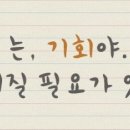 는, 기회야.
질 필요가